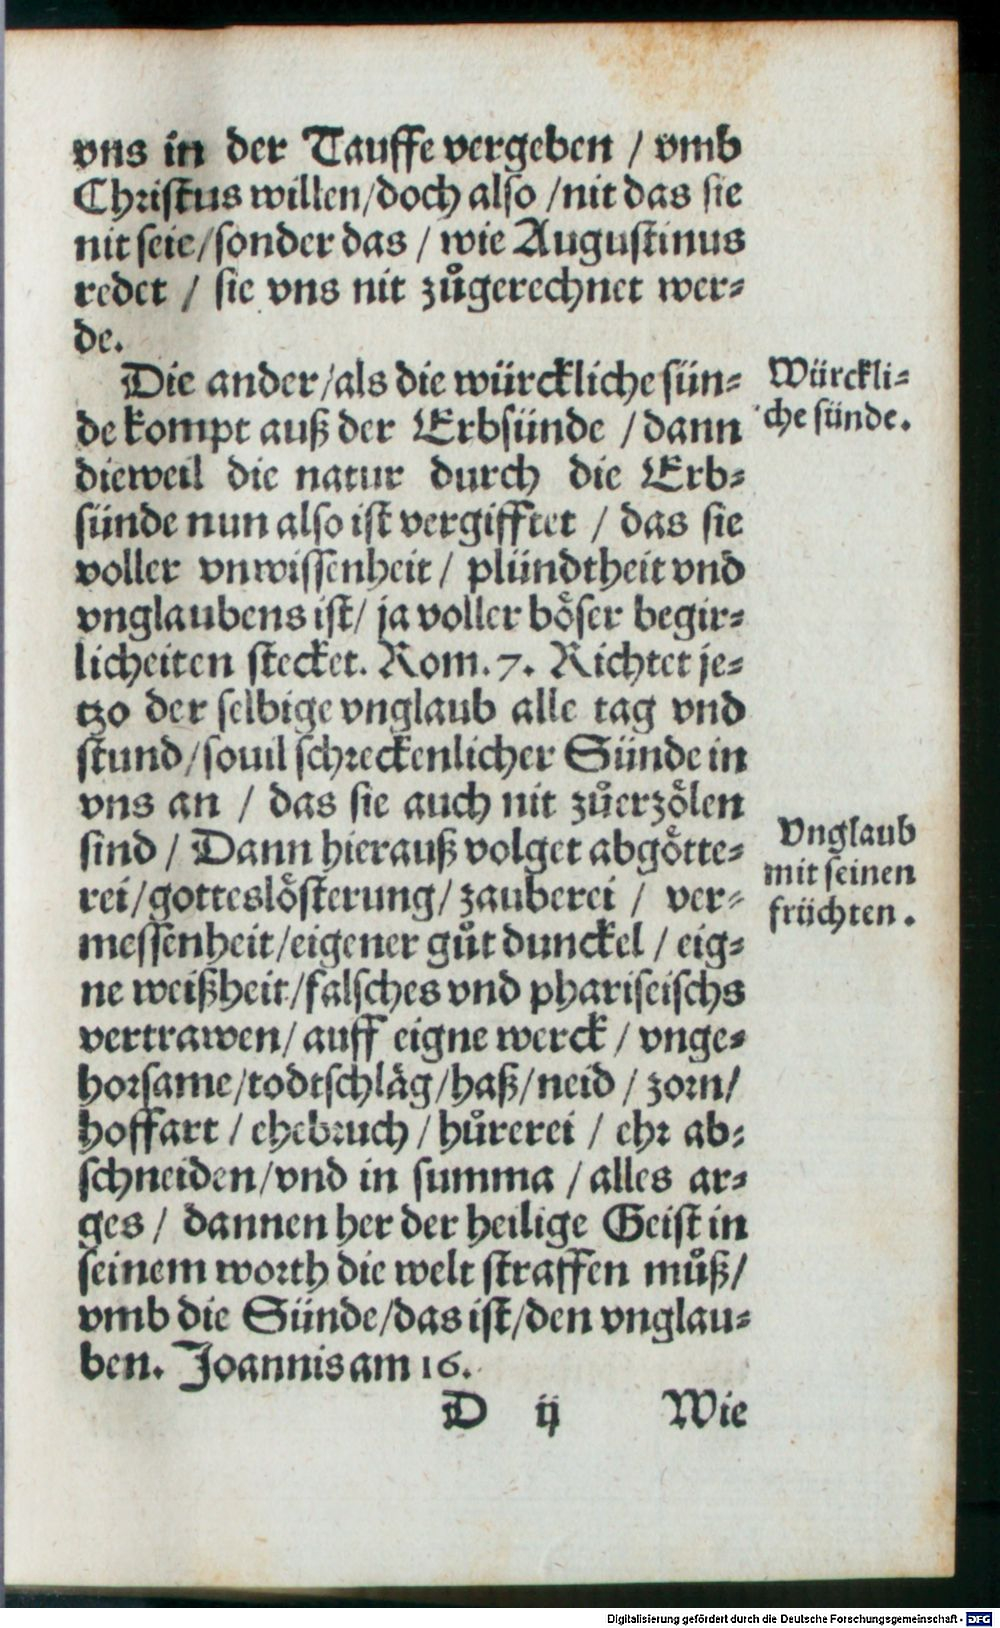 vns in der Tauffe vergeben / vmb
Christus willen/doch also /nit das sie
nit seie/sonder das / wie Augustinus
redet / sie vns nit zůgerechnet wer=
de.
Die ander/als die würckliche sün=
de kompt auß der Erbsünde / dann
dieweil die natur durch die Erb=
sünde nun also ist vergifftet / das sie
voller vnwissenheit / plündtheit vnd
vnglaubens ist/ ja voller böser begir=
licheiten stecket. Rom. 7. Richtet je=
tzo der selbige vnglaub alle tag vnd
stund/souil schreckenlicher Sünde in
vns an / das sie auch nit zůerzölen
sind / Dann hierauß volget abgötte=
rei/gotteslösterung/ zauberei / ver=
messenheit/eigener gůt dunckel / eig=
ne weißheit/falsches vnd phariseischs
vertrawen/ auff eigne werck / vnge=
horsame/todtschläg/haß/neid / zorn/
hoffart / ehebruch / hůrerei / ehr ab=
schneiden/vnd in summa / alles ar=
ges / dannen her der heilige Geist in
seinem worth die welt straffen můß/
vmb die Sünde/das ist/den vnglau=
ben. Joannis am 16.
D ij Wie
Würckli=
che sünde.
Vnglaub
mit seinen
früchten.
Digitalisierung gefördert durch die Deutsche Forschungsgemeinschaft - DFG